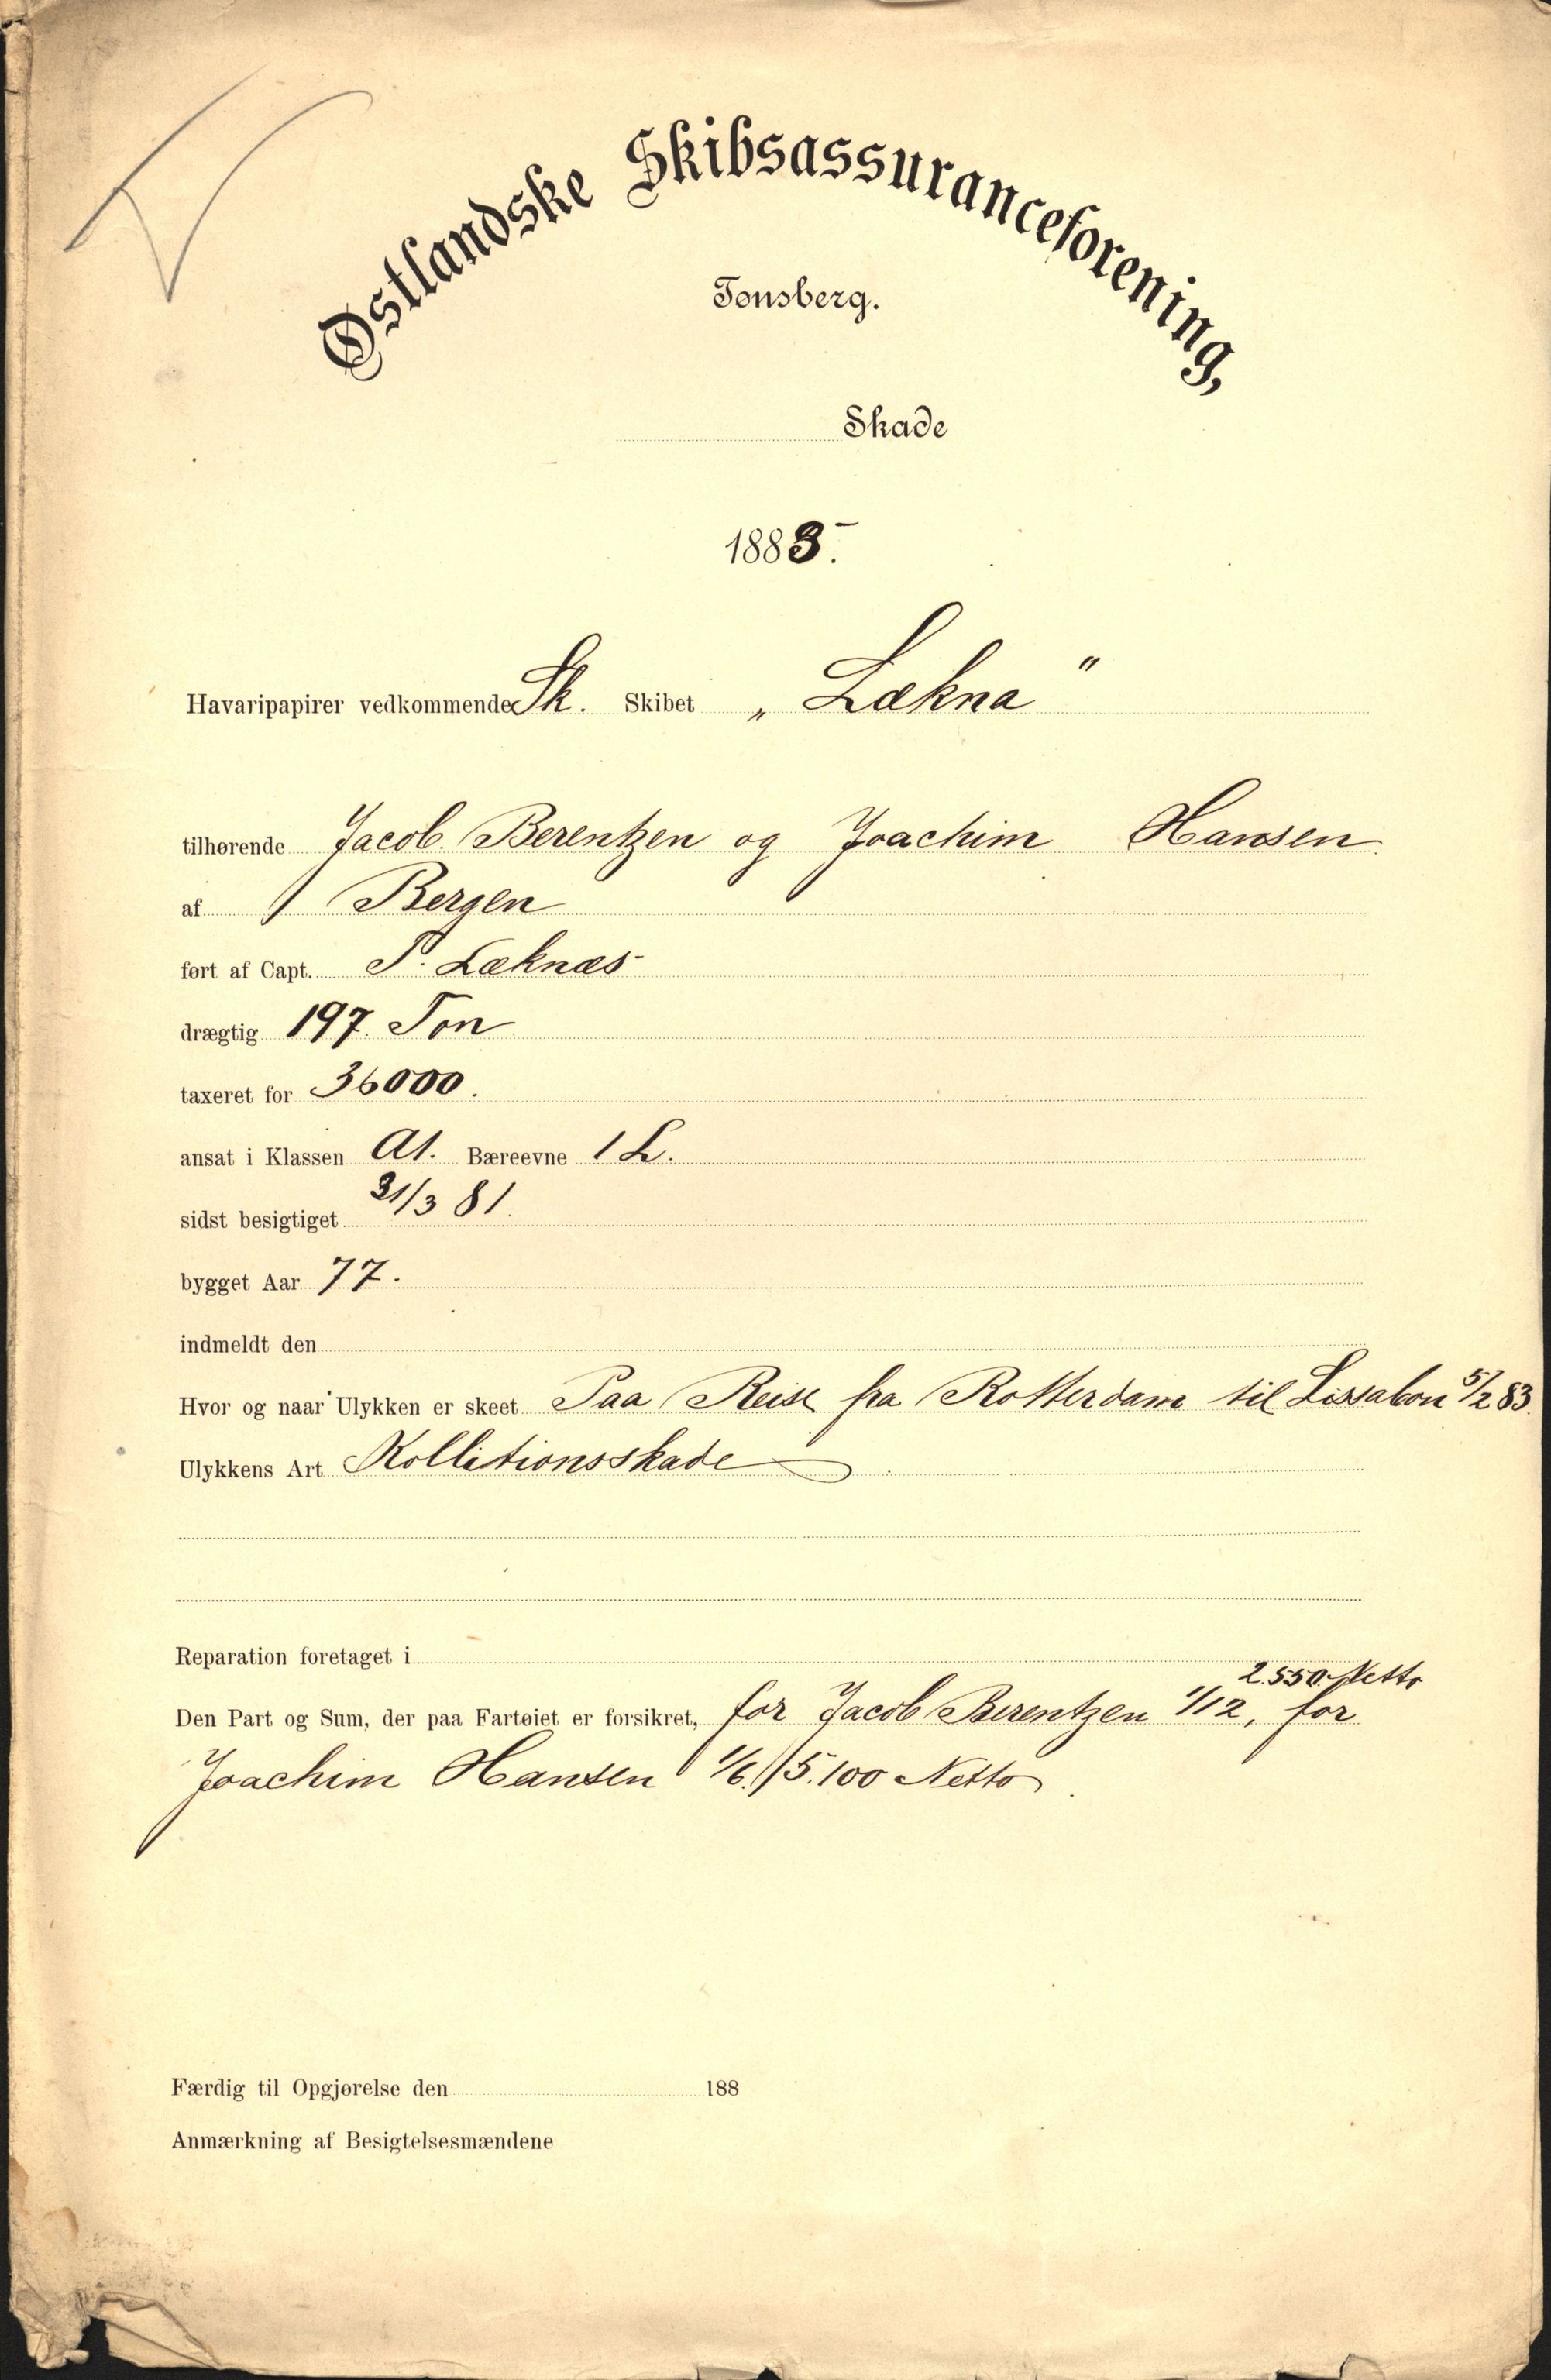 Østlandske Skibsassuranceforening,
Tønsberg.
Skade
1883.
Havaripapirer vedkommende Sk. Skibet „Lækna"
tilhørende Jacob Berentzen og Joachim Hansen
af Bergen
ført af Capt. P. Læknæs
drægtig 197 Ton
taxeret for 36000.
ansat i Klassen A1. Bæreevne 1 L.
sidst besigtiget 31/3 81.
bygget Aar 77.
indmeldt den
Hvor og naar Ulykken er skeet Paa Reise fra Rotterdam til Lissabon 5/2 83.
Ulykkens Art Kollitionsskade
Reparation foretaget i
2.550 Netto
Den Part og Sum, der paa Fartøiet er forsikret, for Jacob Berentzen 1/12, for
Joachim Hansen 1/6. 5.100 Netto.
Færdig til Opgjørelse den 188
Anmærkning af Besigtelsesmændene